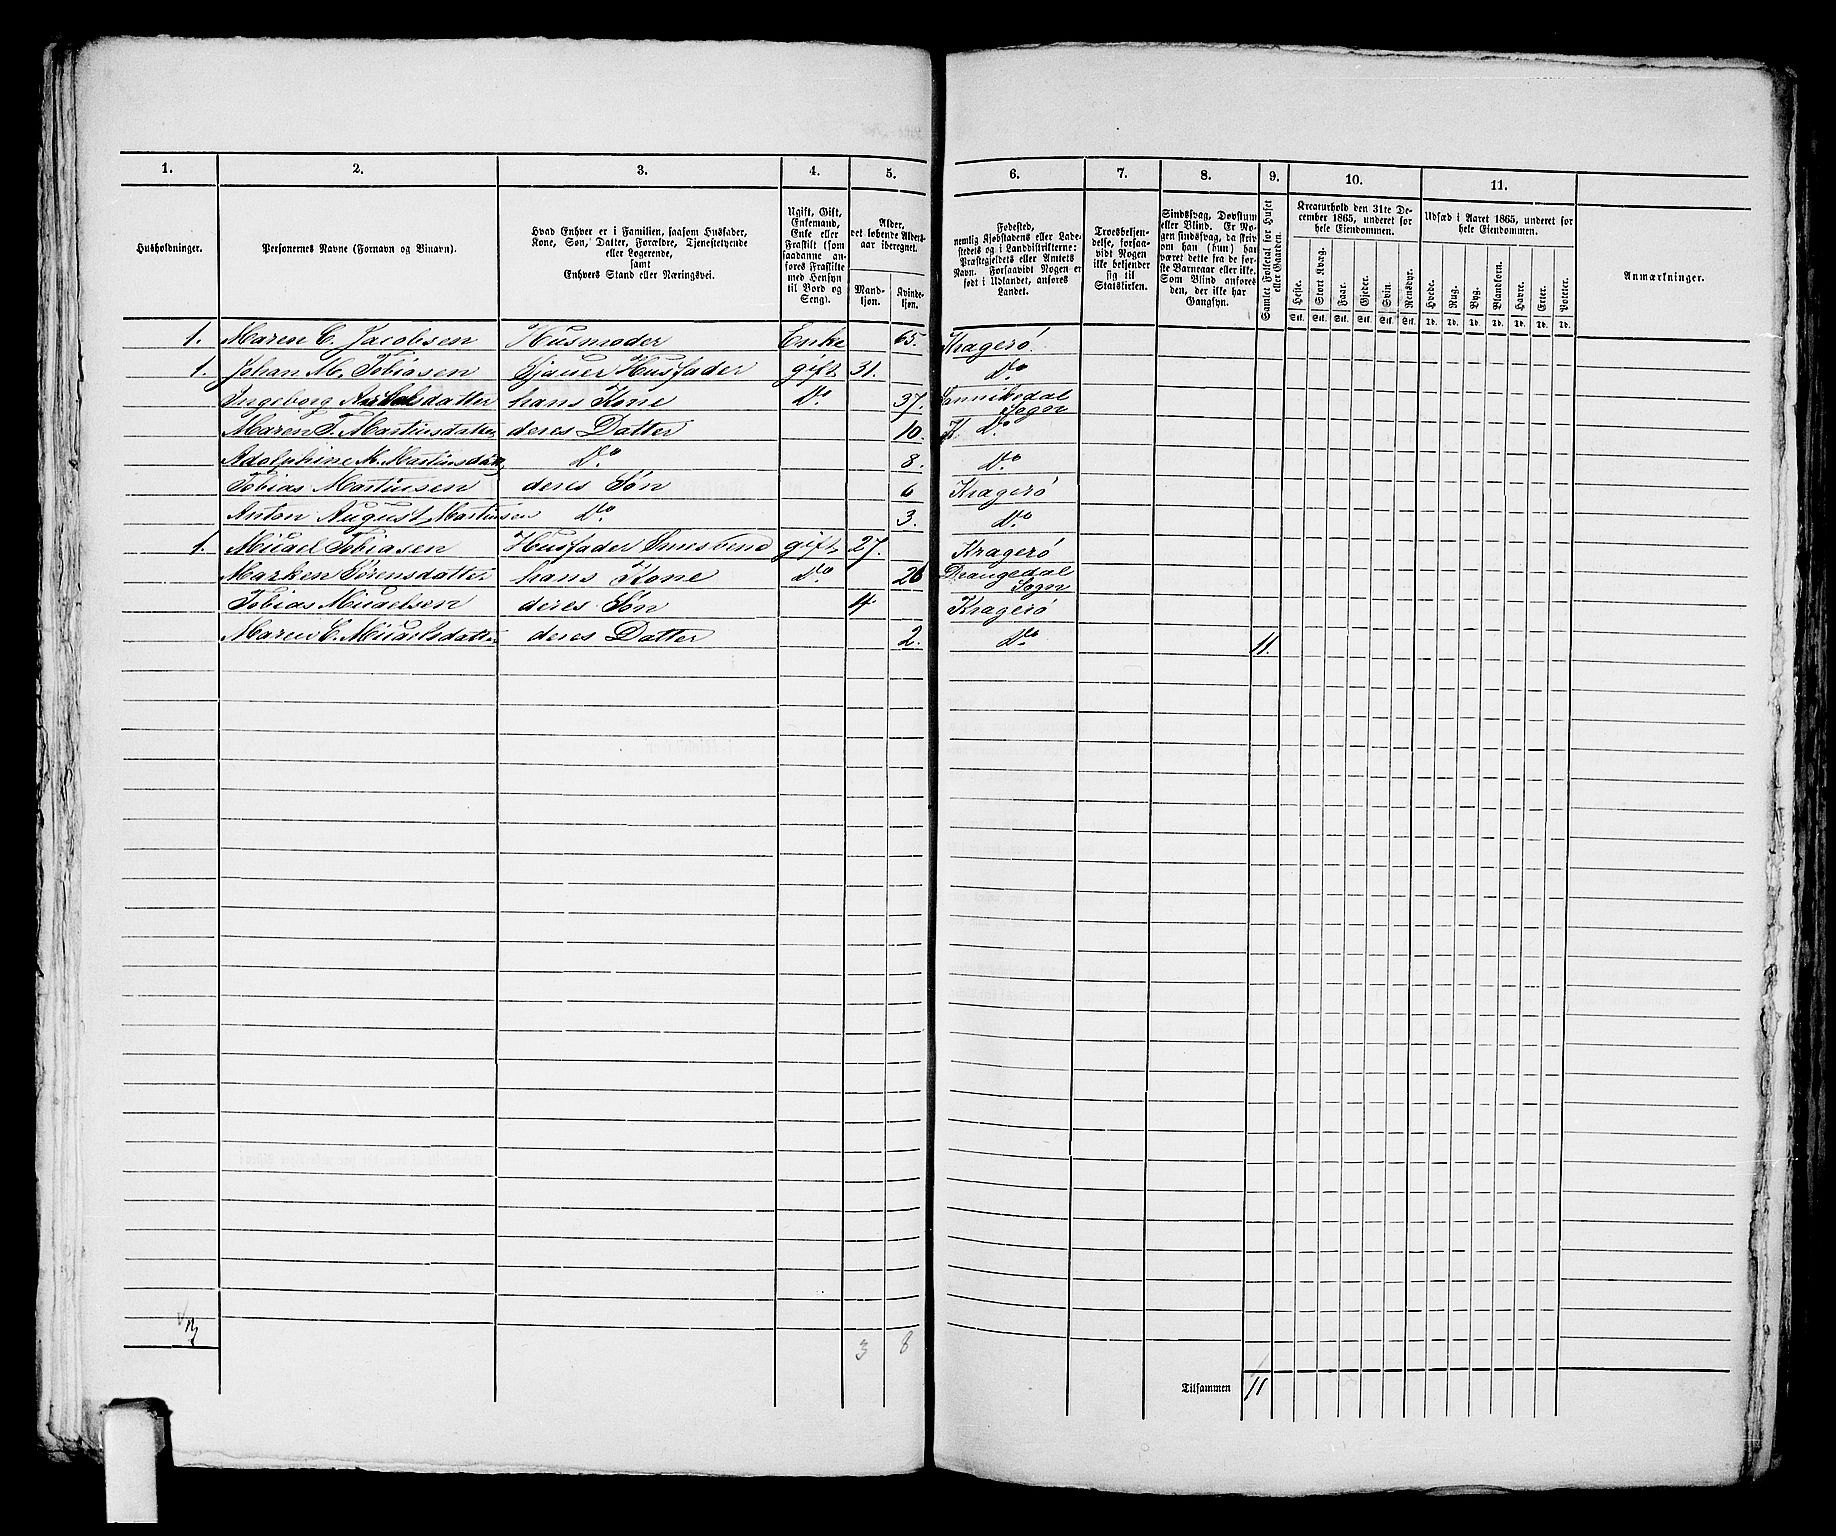 1. 2. 3. 4. 5. 6. 7. 8. 9. 10. 11.
Husholdninger.
Personernes Navne (Fornavn og Binavn).
Hvad Enhver er i Familien, saasom Husfader,
Kone, Søn, Datter, Forældre, Tjenestetyende
eller Logerende,
samt
Enhvers Stand eller Næringsvei.
Ugift, Gift,
Enkemand,
Enke eller
Fraskilt (som
saadanne an-
føres Fraskilte
med Hensyn
til Bord og
Seng).
Alder,
det løbende Alders-
aar iberegnet.
Mand-
kjøn.
Kvinde-
kjøn.
Fødested,
nemlig Kjøbstadens eller Lade-
stedets og i Landdistrikterne:
Præstegjeldets eller Amtets
Navn. Forsaavidt Nogen er
født i Udlandet, anføres
Landet.
Troesbekjen-
delse, forsaa-
vidt Nogen
ikke bekjender
sig til
Statskirken.
Sindssvag, Døvstum
eller Blind. Er No-
gen sindssvag, da skriv
om han (hun) har
været dette fra de før-
ste Barneaar eller ikke.
Som Blind anføres
den, der ikke har
Gangsyn.
Samlet Folketal for Huset
eller Gaarden.
Kreaturhold den 31te De-
cember 1865, underet for
hele Eiendommen.
Heste. Stort Kvæg. Faar. Gjeder. Svin. Rensdyr.
Stk. Stk. Stk. Stk. Stk. Stk.
Udsæd i Aaret 1865, underet for
hele Eiendommen.
Hvede. Rug. Byg. Blandkorn. Havre. Erter. Poteter.
Td. Td. Td. Td. Td. Td. Td.
Anmærkninger.
1. Maren C. Jacobsen Husmoder Enke 65. Kragerö.
1. Johan M. Tobiasen Sjauer Husfader gift 31. Do
Ingeborg datter hans Kone Do 37. Sannikedal Sogn
Maren T. Martinsdatter deres Datter 10. K. Do
Adolphine M. Martinsdatt Do 8. Do
Tobias Martinsen deres Søn 6 Kragerö
Anton August Martinsen Do 3. Do
1. Micael Tobiasen Husfader gift 27. Kragerö
Marken Sørensdatter hans Kone Do 26 Drangedal Sogn
Tobias Micaelsen deres Søn 4. Kragerö
Maren C. Micaelsdatter deres Datter 2. Do 11.
3 8
Tilsammen 11